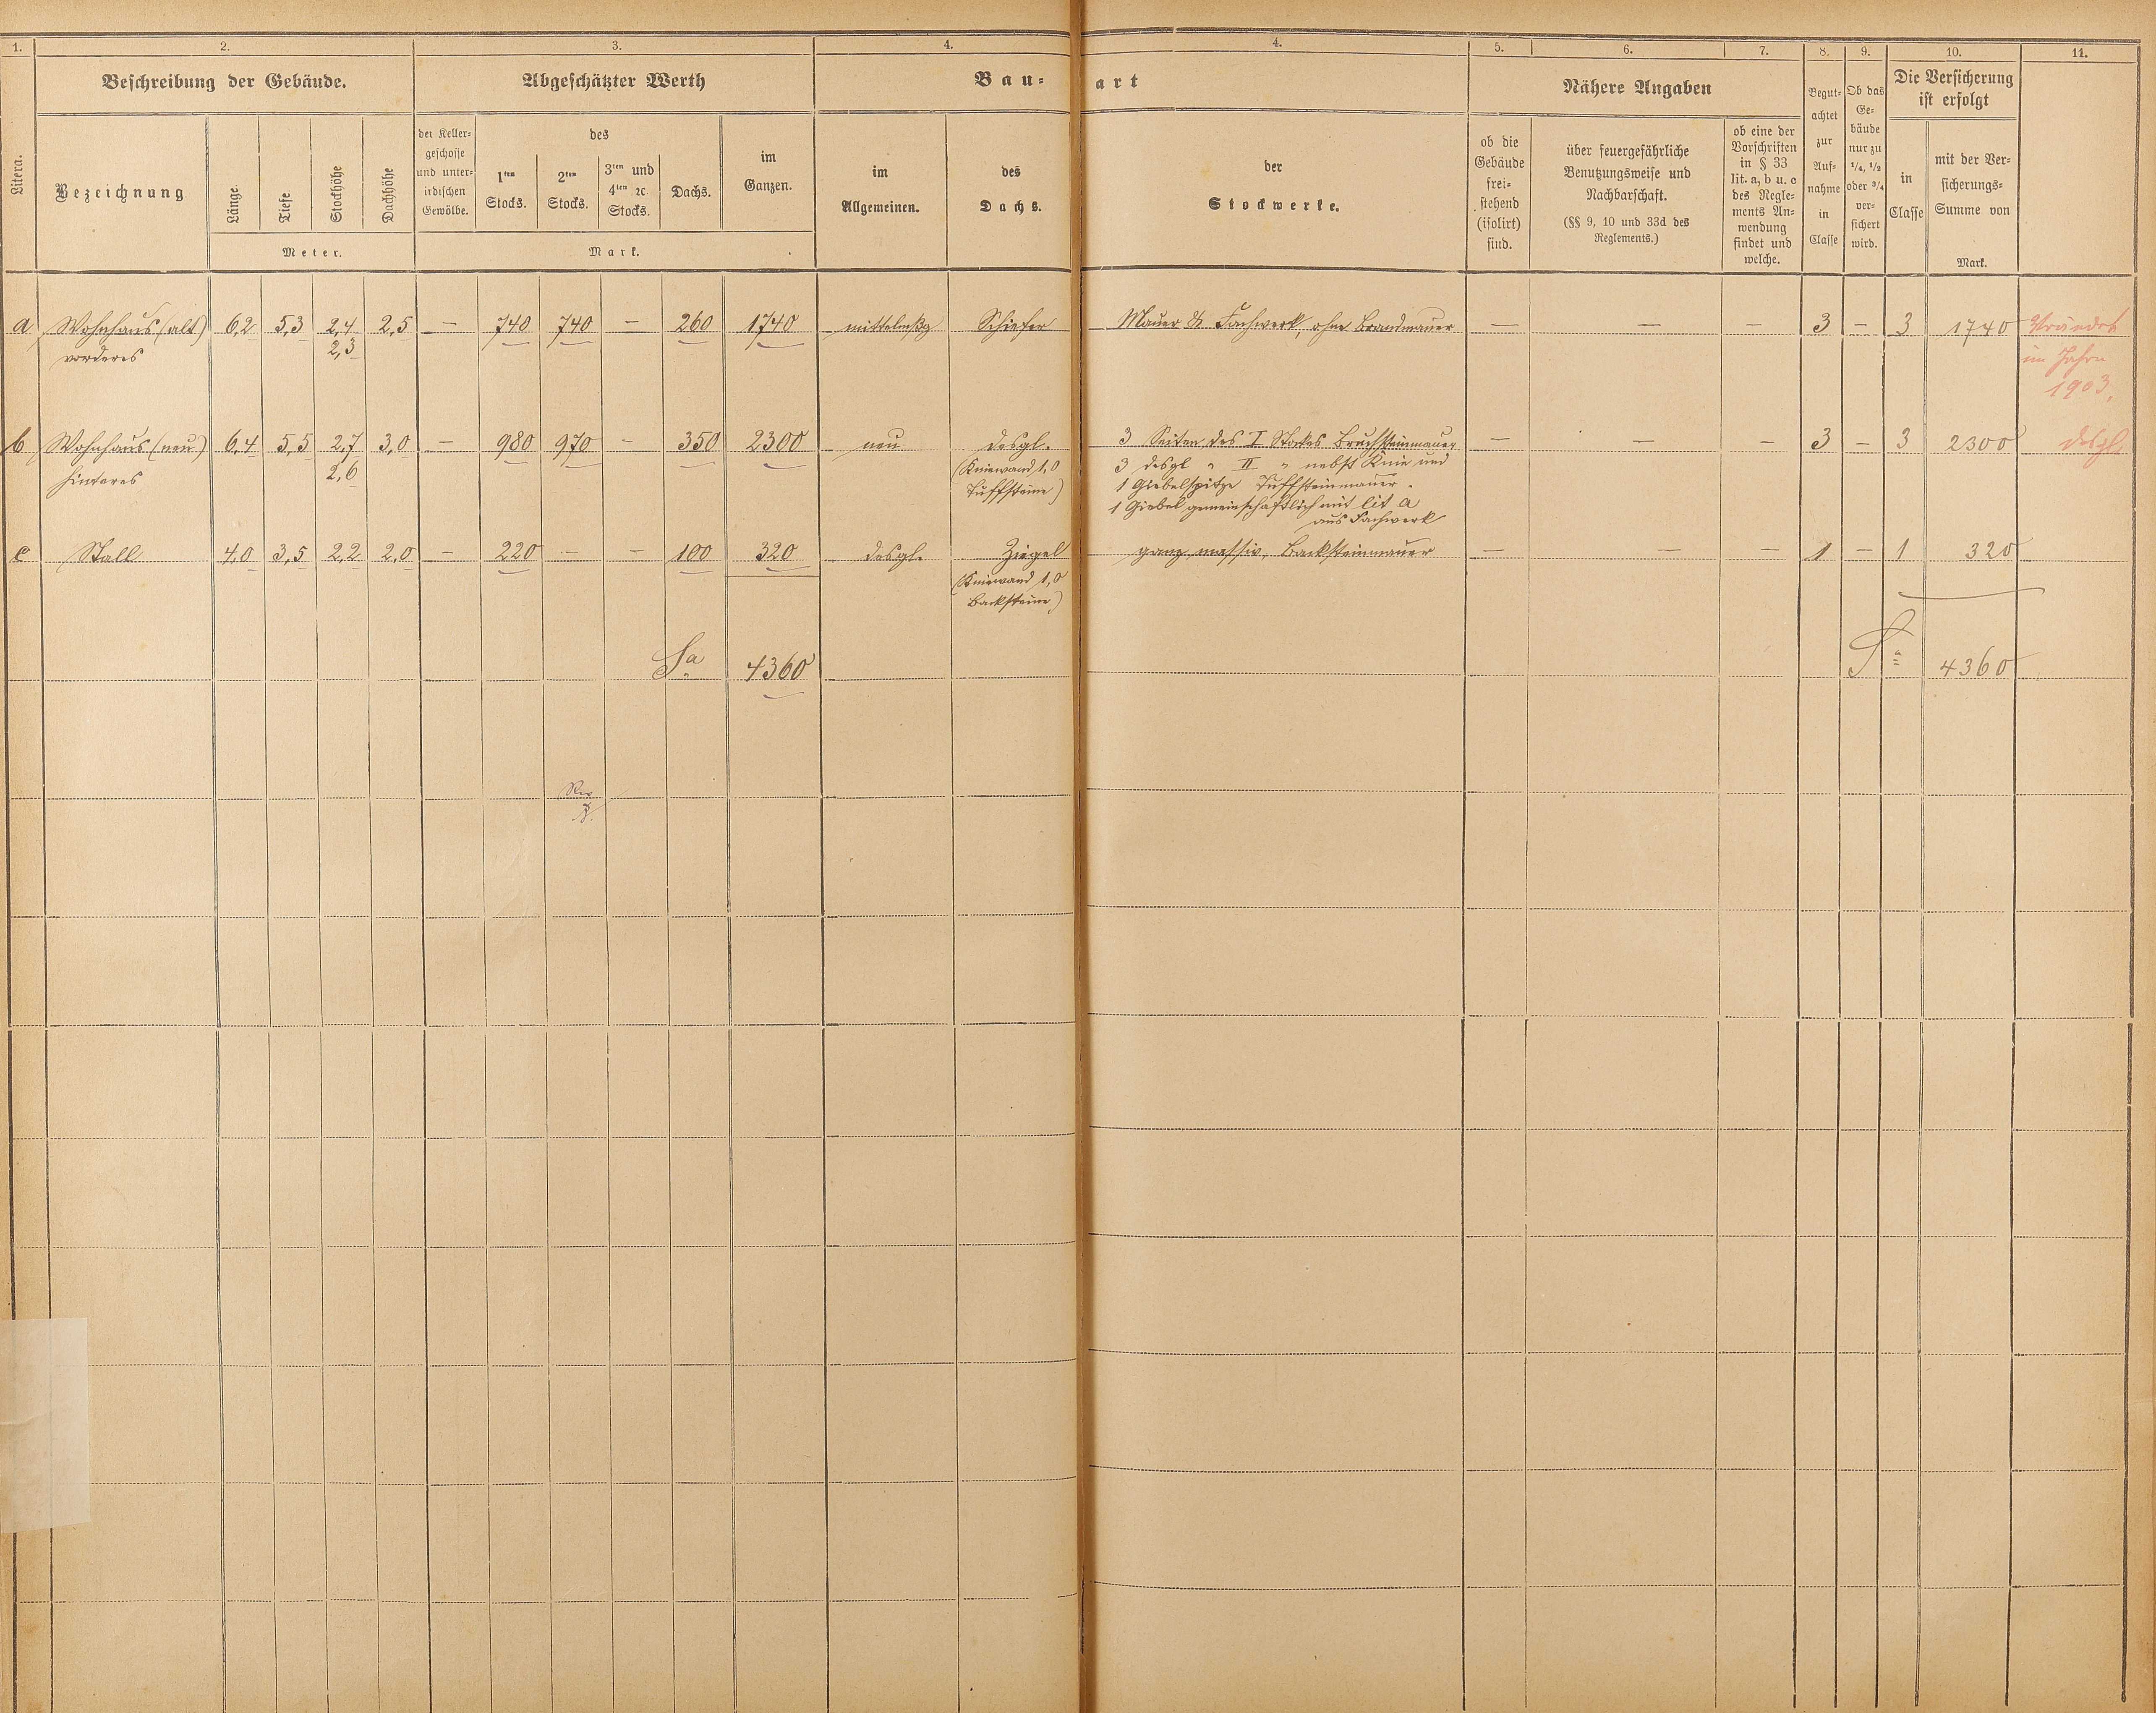 1. 2. 3. 4. 4. 5. 6. 7. 8. 9. 10. 11.
Litera.
Beschreibung der Gebäude.
Bezeichnung
Länge
Tiefe
Stockhöhe
Dachhöhe
Meter.
Abgeschätzter Werth
der Keller-
geschosse
und unter-
irdischen
Gewölbe.
des
1ten
Stocks.
2ten
Stocks.
3ten und
4ten ꝛc.
Stocks.
Dachs.
im
Ganzen.
Mark.
Bau-art
im
Allgemeinen.
des
Dachs.
der
Stockwerke.
Nähere Angaben
ob die
Gebäude
frei-
stehend
(isolirt)
sind.
über feuergefährliche
Benutzungsweise und
Nachbarschaft.
(§§ 9, 10 und 33d des
Reglements.)
ob eine der
Vorschriften
in § 33
lit. a, b u. c
des Regle-
ments An-
wendung
findet und
welche.
Begut-
achtet
zur
Auf-
nahme
in
Classe
Ob das
Ge-
bäude
nur zu
1/4, 1/2
oder 3/4
ver-
sichert
wird.
Die Versicherung
ist erfolgt
in
Classe
mit der Ver-
sicherungs-
Summe von
Mark.
a Wohnhaus (alt) 6,2 5,3 2,4 2,5 — 740 740 — 260 1740 mittelmßg Schiefer Mauer & Fachwerk, ohne Brandmauer — — — 3 — 3 1740
vorderes 2,3
im Jahre
1903.
b Wohnhaus (neu) 6,4 5,5 2,7 3,0 — 980 970 — 350 2300 neu desgl. 3 Seiten des I Stockes Bruchsteinmauer — — — 3 — 3 2300 desgl.
hinteres 2,6 (Kniewand 1,0 3 desgl " II " nebst Knie und
Tuffsteine) 1 Giebelspitze Tuffsteinmauer.
1 Giebel gemeinschaftlich mit lit a
aus Fachwerk
c Stall 4,0 3,5 2,2 2,0 — 220 — — 100 320 desgl. Ziegel ganz massiv, Backsteinmauer — — — 1 — 1 320
(Kniewand 1,0
Backsteine)
Sa 4360 Sa 4360